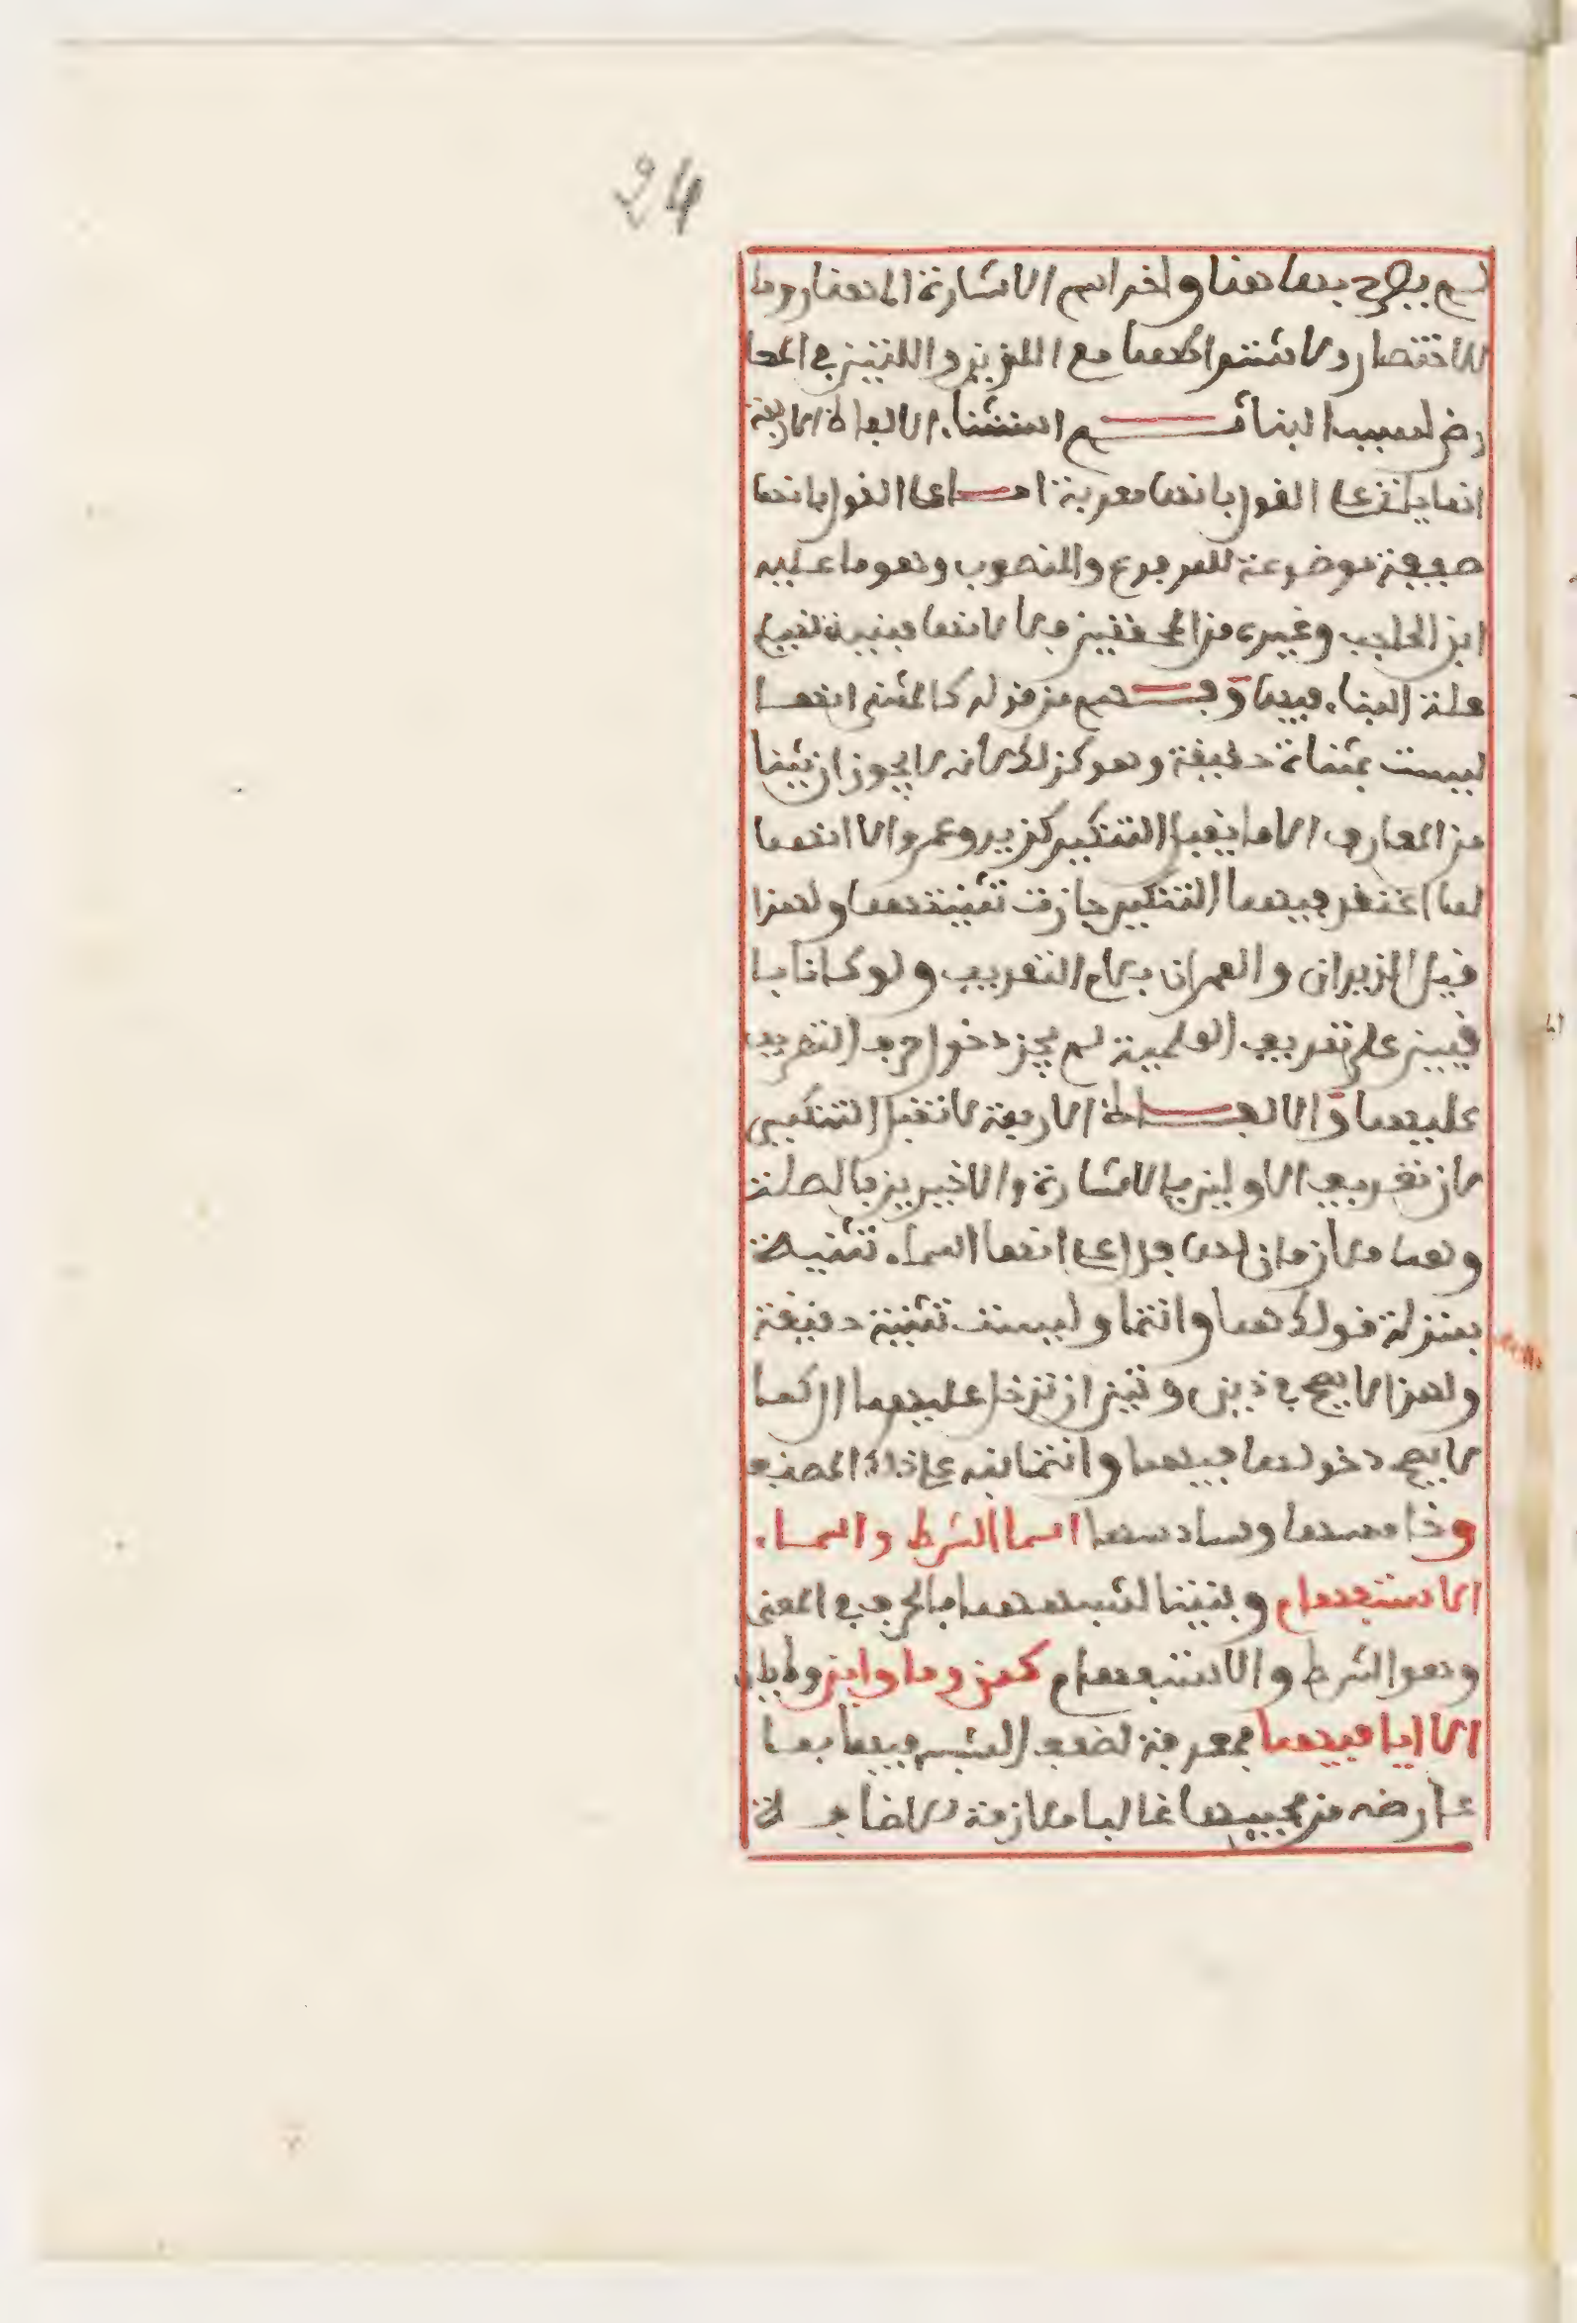 24
لم يصرح بهما هنا واخر اسم الاشارة الى هنا روما
للاختصار ولاشتراكهما مع اللذين واللتين في المعا
رض لسبب البنا ثم استثناء الالفاظ الاربعة
انما يلتزم على القول بانها معربة اما على القول بانها
صيغة موضوعة للمرفوع والمنصوب وهو ما عليه
ابن الحاجب وغيره من المحققين فلا لانها مبنية لقيام
علة البناء فيها وفهم من قوله كالمثنى انهما
ليست بمثناة حقيقة وهو كذلك لانه لا يجوز ان يثنا
من المعارف الا ما يقبل التنكير كزيد وعمرو الا انهما
لما اعتقد فيهما التنكير جازت تثنيتهما ولهذا
قيل الزيدان والعمران بلام التعريف ولو كانا با
قيين على تعريف العلمية لم يجز دخول حرف التعريف
عليهما والالفاظ الاربعة لا تقبل التنكير
لان تعريف الاولين بالاشارة والاخيرين بالصلة
وهما ملازمان لها فدل على انها اسماء تثنية
بمنزلة قولك هما وانتما وليست تثنية حقيقة
ولهذا لا يصح في ذين وتين ان تدخل عليهما ال كما
لا يصح دخولها في هما وانتما نبه على ذلك المصنف
وخامسها وسادسها اسما الشرط واسماء
الاستفهام وبنينا لشبههما بالحرف في المعنى
وهو الشرط والاستفهام كمن وما واين وطبايا
الا ايا فيهما فمعربة لضعف الشبه فيها بما
عارضه من مجيئها غالبا ملازمة للاضافة